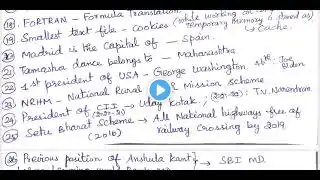 18. FORTRAN - Formula Translation.
19. Smallest text file - Cookies (while working on
temporary memory is stored as)
↳ Cache.
20. Madrid is the Capital of - Spain.
21. Tamasha dance belongs to - Maharashtra
22. 1st president of USA - George Washington. 46th: Joe Biden
23. NRHM - National Rural Mission scheme
24. President of CII → Uday Kotak. ; (2021-22): T.V. Narendran.
(2020-21)
25. Setu Bharat Scheme → All National highways free of
(2016) railway Crossing by 2019
26. Previous position of Anshula kant → SBI MD.